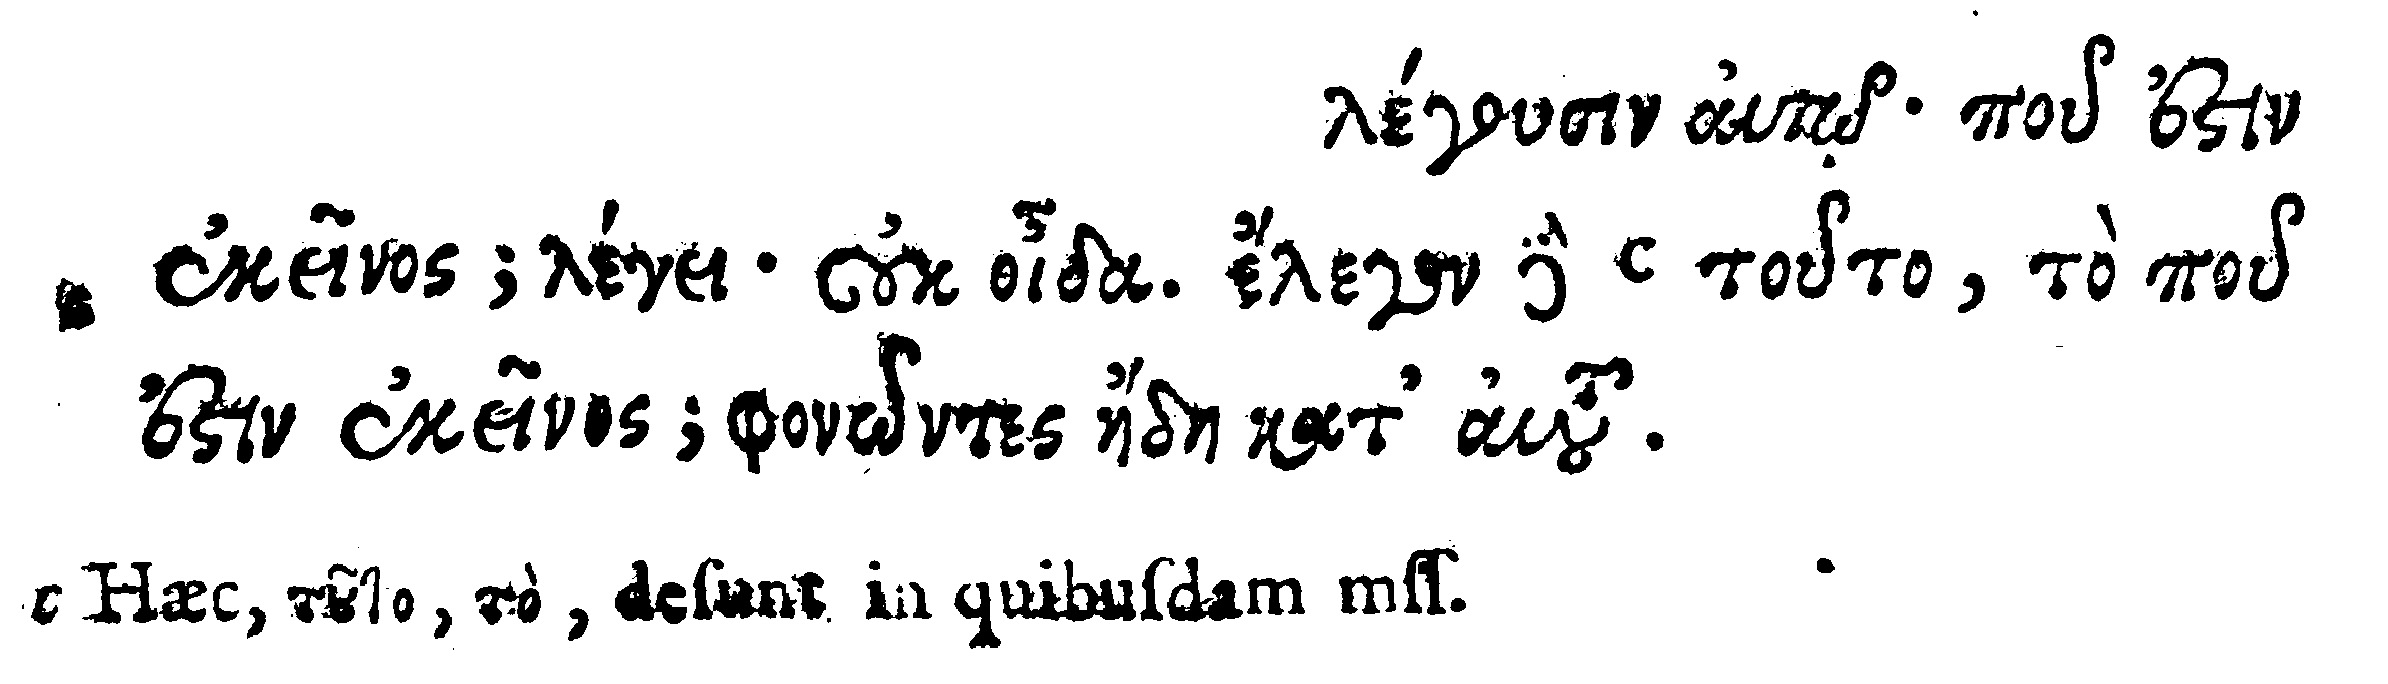 λέγουσιν αὐτῷ· ποῦ ἐστιν
ἐκεῖνος; λέγει· οὐκ οἶδα. ἔλεγον ἢ c τοῦτο, τὸ ποῦ
ἐστιν ἐκεῖνος; φονῶντες ἤδη κατ' αὐτοῦ.
c Hæc, τοῦτο, τὸ, deſunt in quibuſdam mſſ.